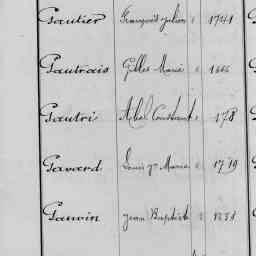 Gautier François Julien 1741
Gautrais Gilles Marie
Gautri Abel Constant
Gavard Louis Marie 1719
Gauvin Jean Baptiste